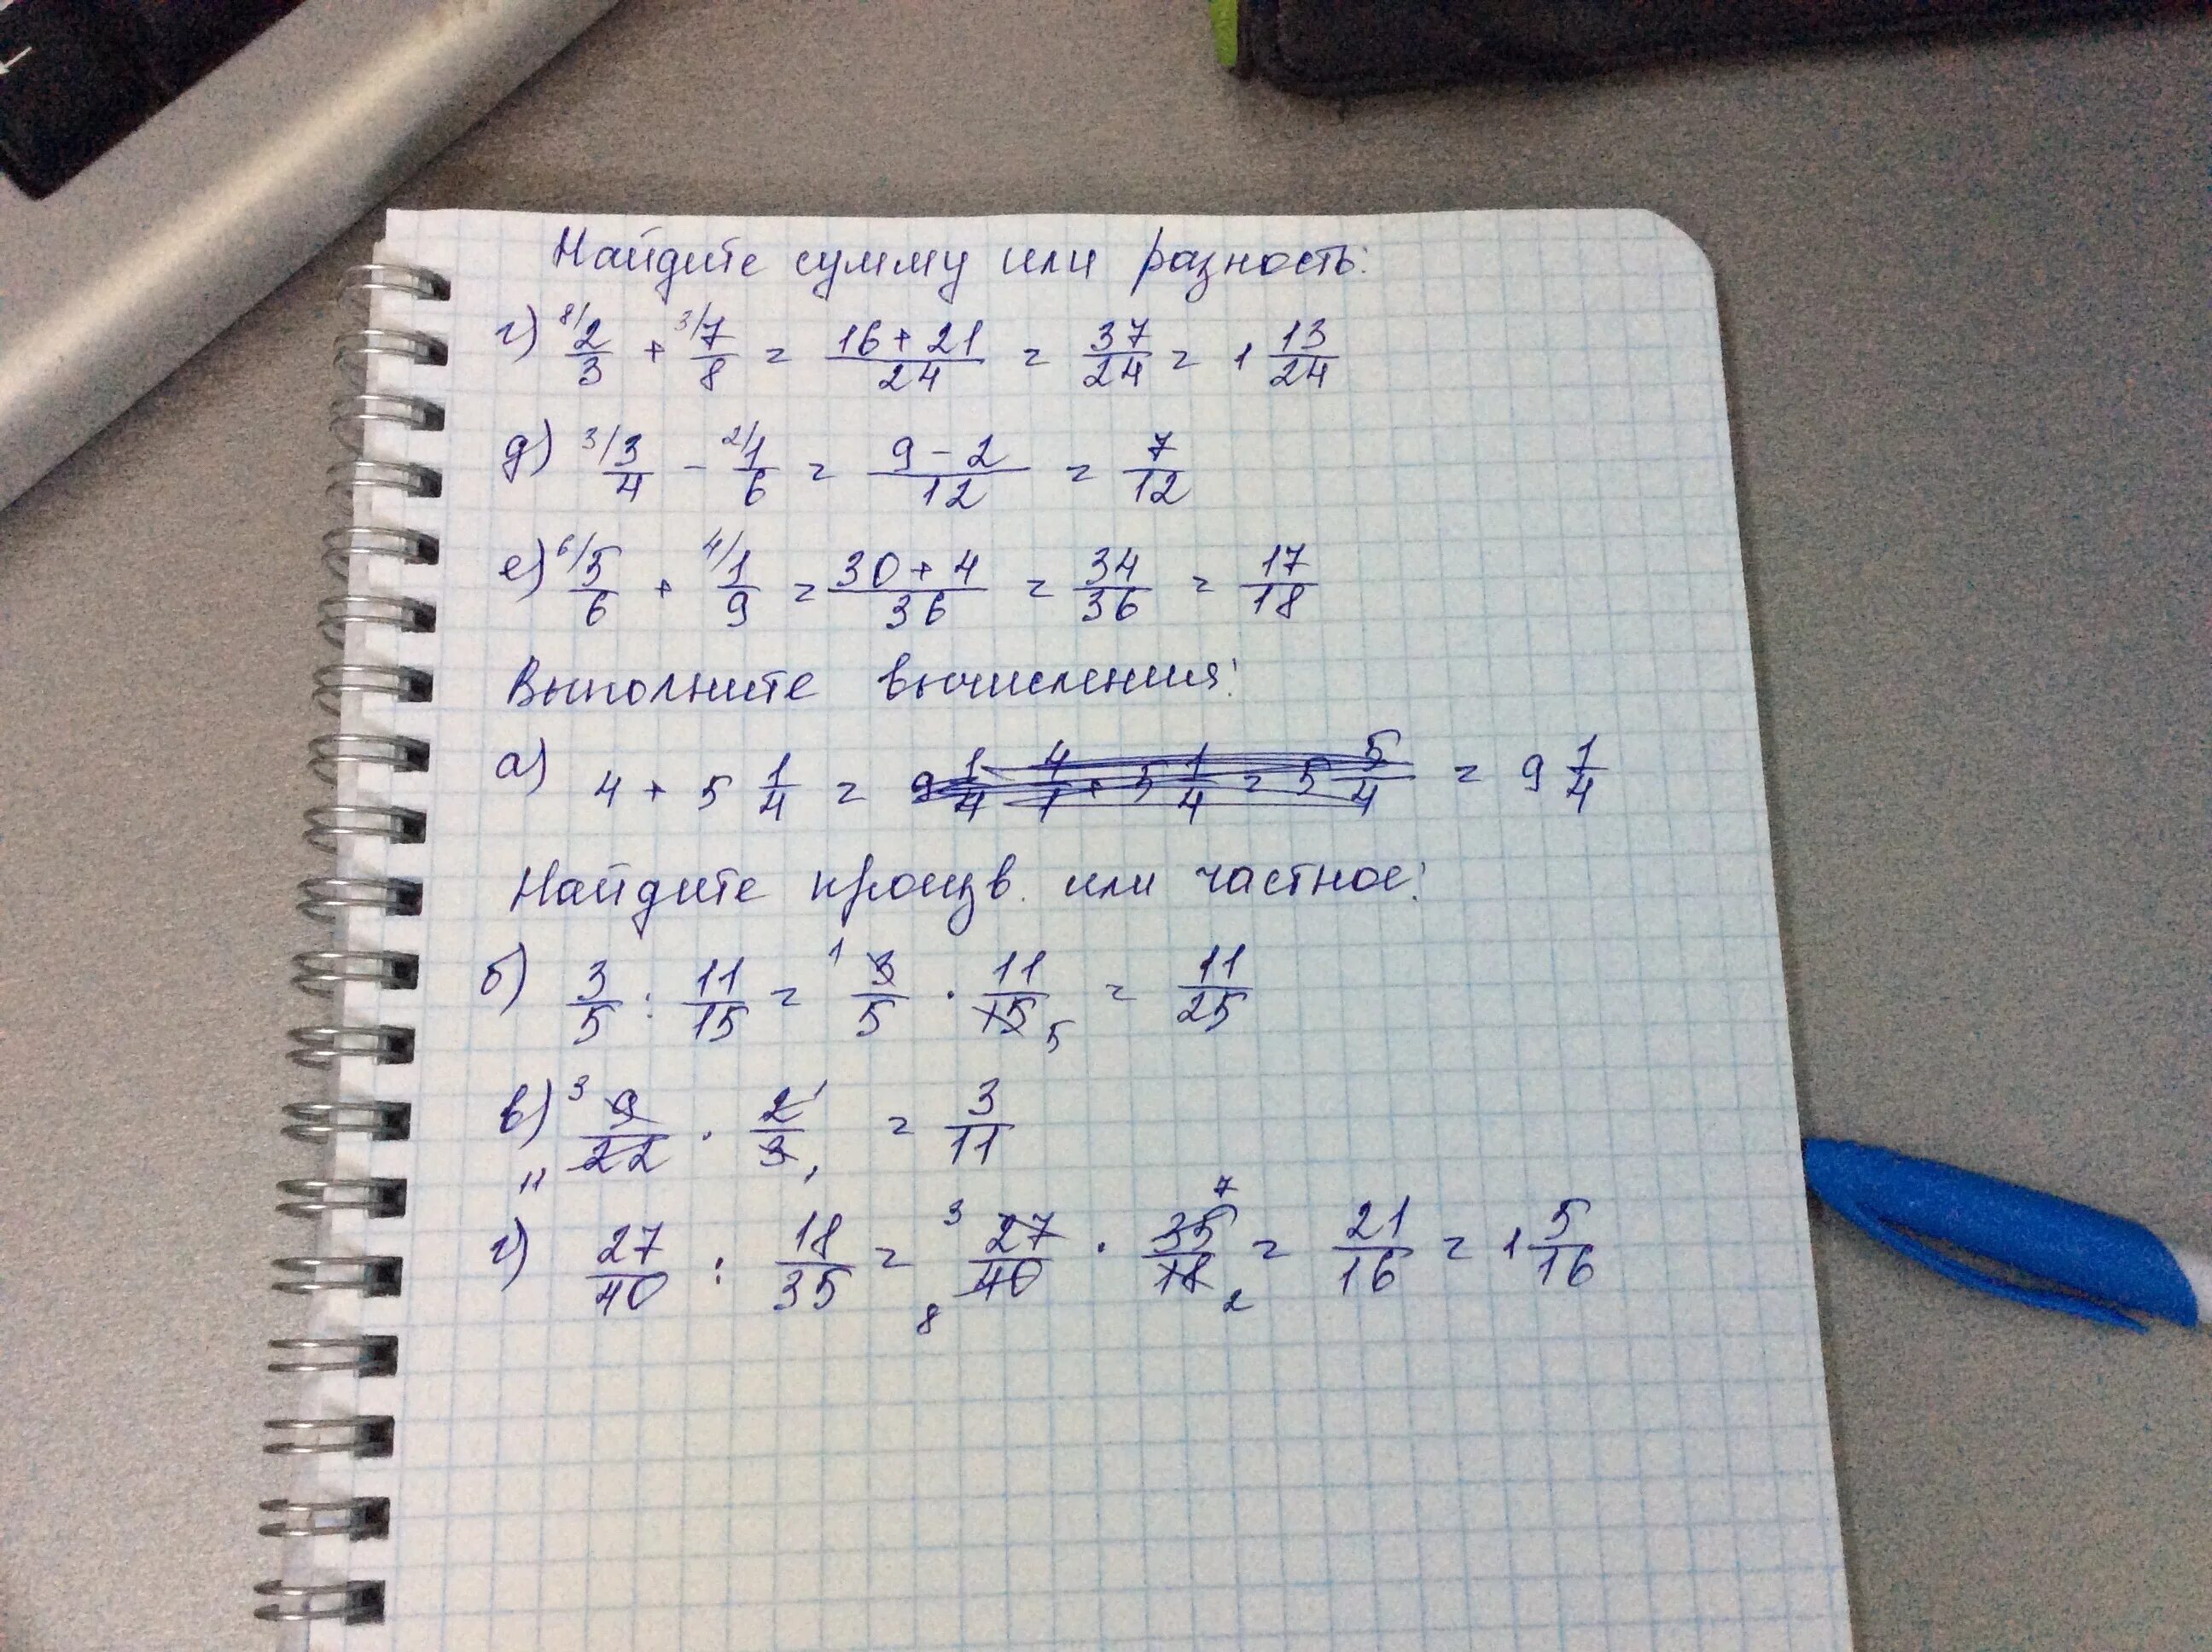 Найдите сумму или разность:
г) 8/ 2/3 + 3/ 7/8 = (16 + 21)/24 = 37/24 = 1 13/24
д) 3/ 3/4 - 2/ 1/6 = (9 - 2)/12 = 7/12
е) 6/ 5/6 + 4/ 1/9 = (30 + 4)/36 = 34/36 = 17/18
Выполните вычисления:
а) 4 + 5 1/4 = 9 1/4 4/1 + 5 1/4 = 5 5/4 = 9 1/4
Найдите произв. или частное:
б) 3/5 : 11/15 = 1 3/5 · 11/15 5 = 11/25
в) 3 9/22 11 · 2/3 1 1 = 3/11
г) 27/40 : 18/35 = 3 27/40 8 · 7 35/18 2 = 21/16 = 1 5/16